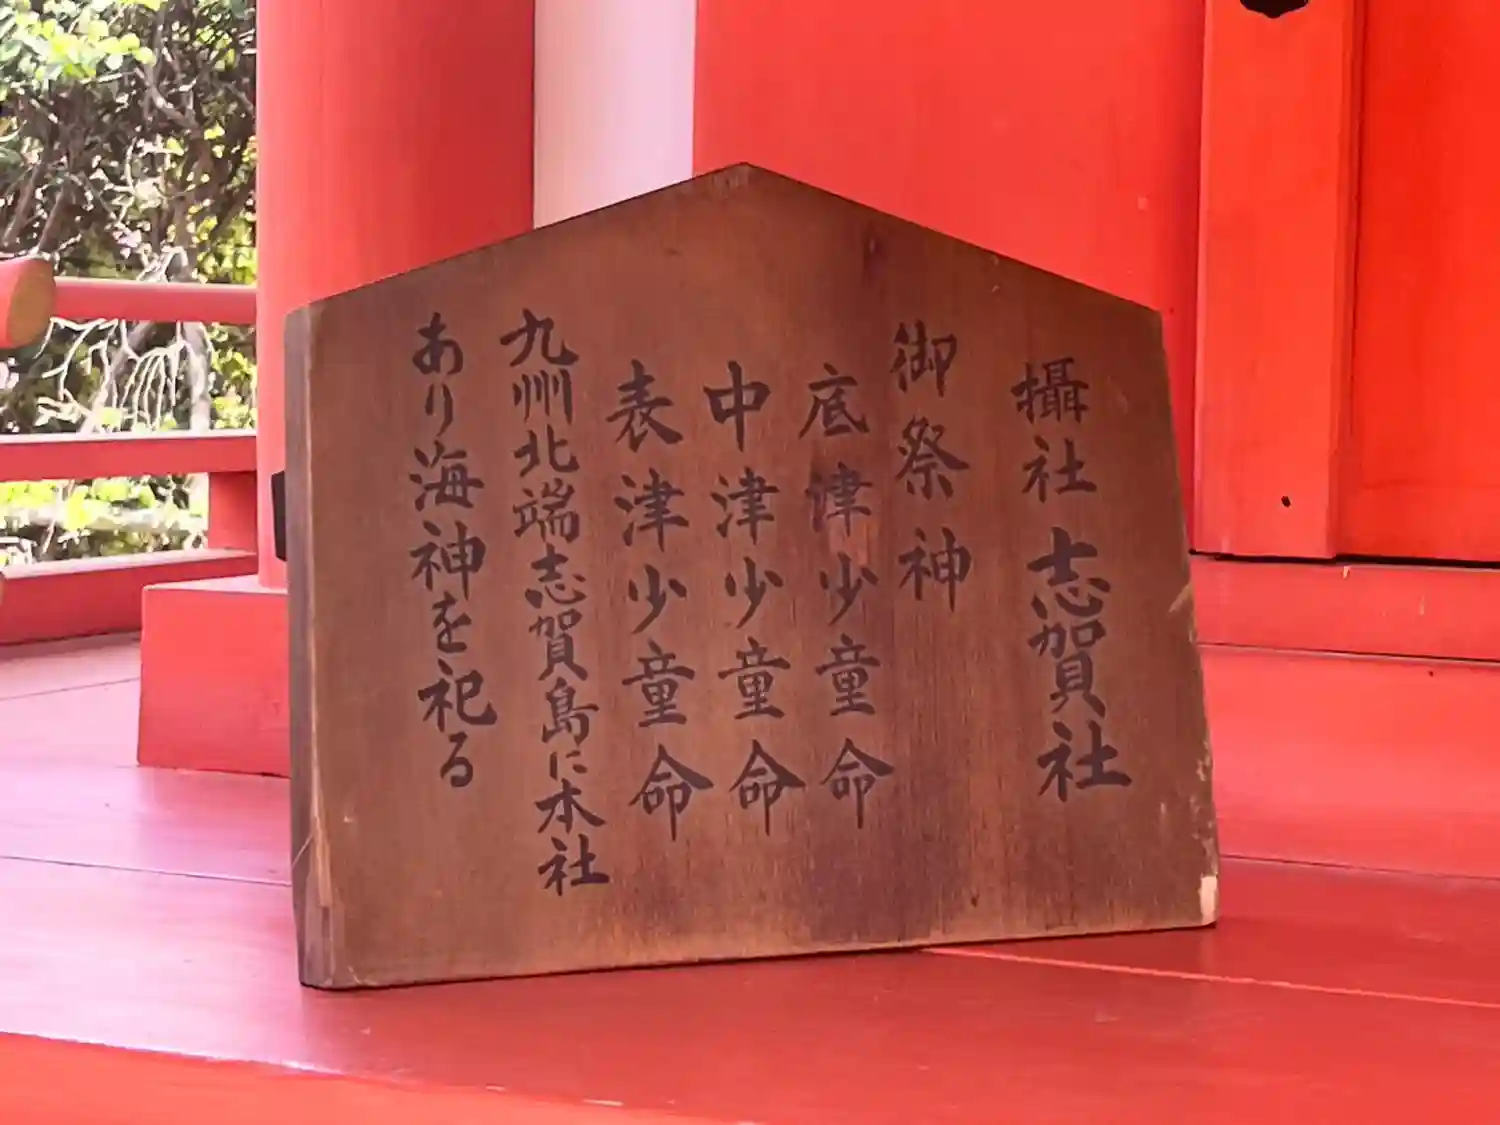 攝社 志賀社
御祭神
底津少童命
中津少童命
表津少童命
九州北端志賀島に本社
あり海神を祀る